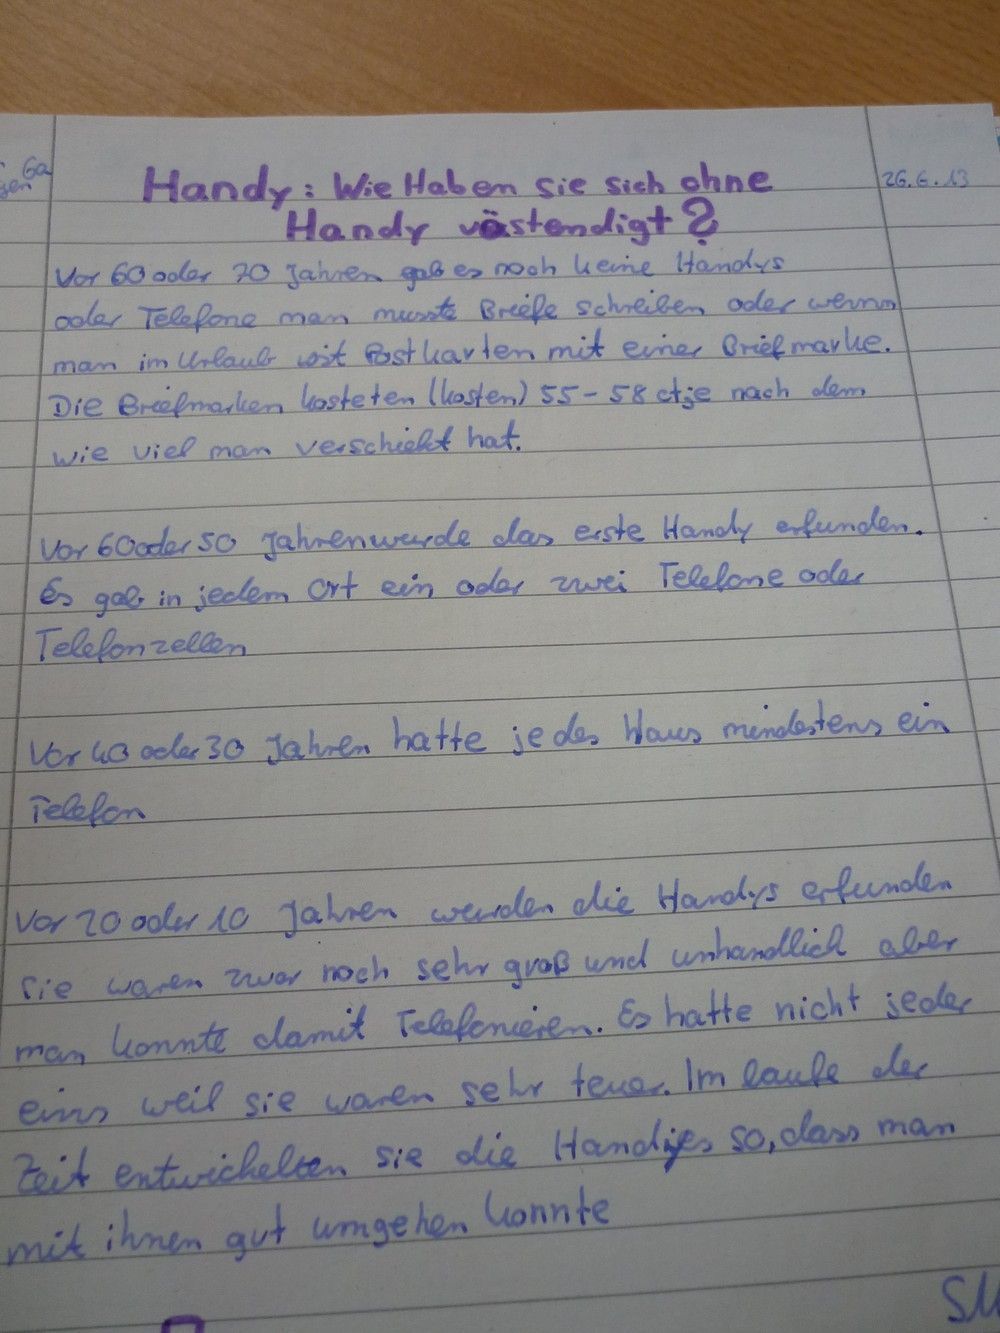 6a
26.6.13
Handy: Wie Haben sie sich ohne
Handy västendigt?
Vor 60 oder 70 Jahren gab es noch keine Handys
oder Telefone man musste Briefe schreiben oder wenn
man im Urlaub ist Postkarten mit einer Briefmarke.
Die Briefmarken kosteten (kosten) 55-58 ct je nach dem
wie viel man verschickt hat.
Vor 60 oder 50 Jahren wurde das erste Handy erfunden.
Es gab in jedem Ort ein oder zwei Telefone oder
Telefonzellen
Vor 40 oder 30 Jahren hatte jedes Haus mindestens ein
Telefon
Vor 20 oder 10 Jahren wurden die Handys erfunden
sie waren zwar noch sehr groß und unhandlich aber
man konnte damit Telefonieren. Es hatte nicht jeder
eins weil sie waren sehr teuer. Im laufe der
Zeit entwickelten sie die Handys so, dass man
mit ihnen gut umgehen konnte